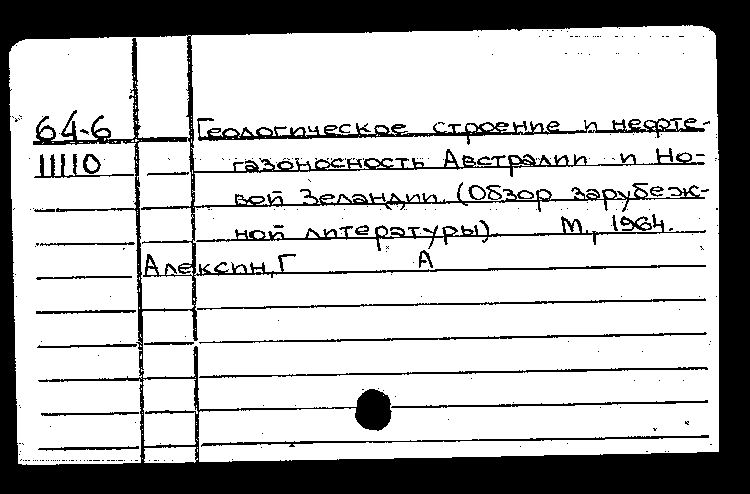 64-6 Геологическое строение и нефте-
11110 газоносность Австралии и Но-
вой Зеландии. (Обзор зарубеж-
ной литературы). М., 1964.
Алексин, Г А